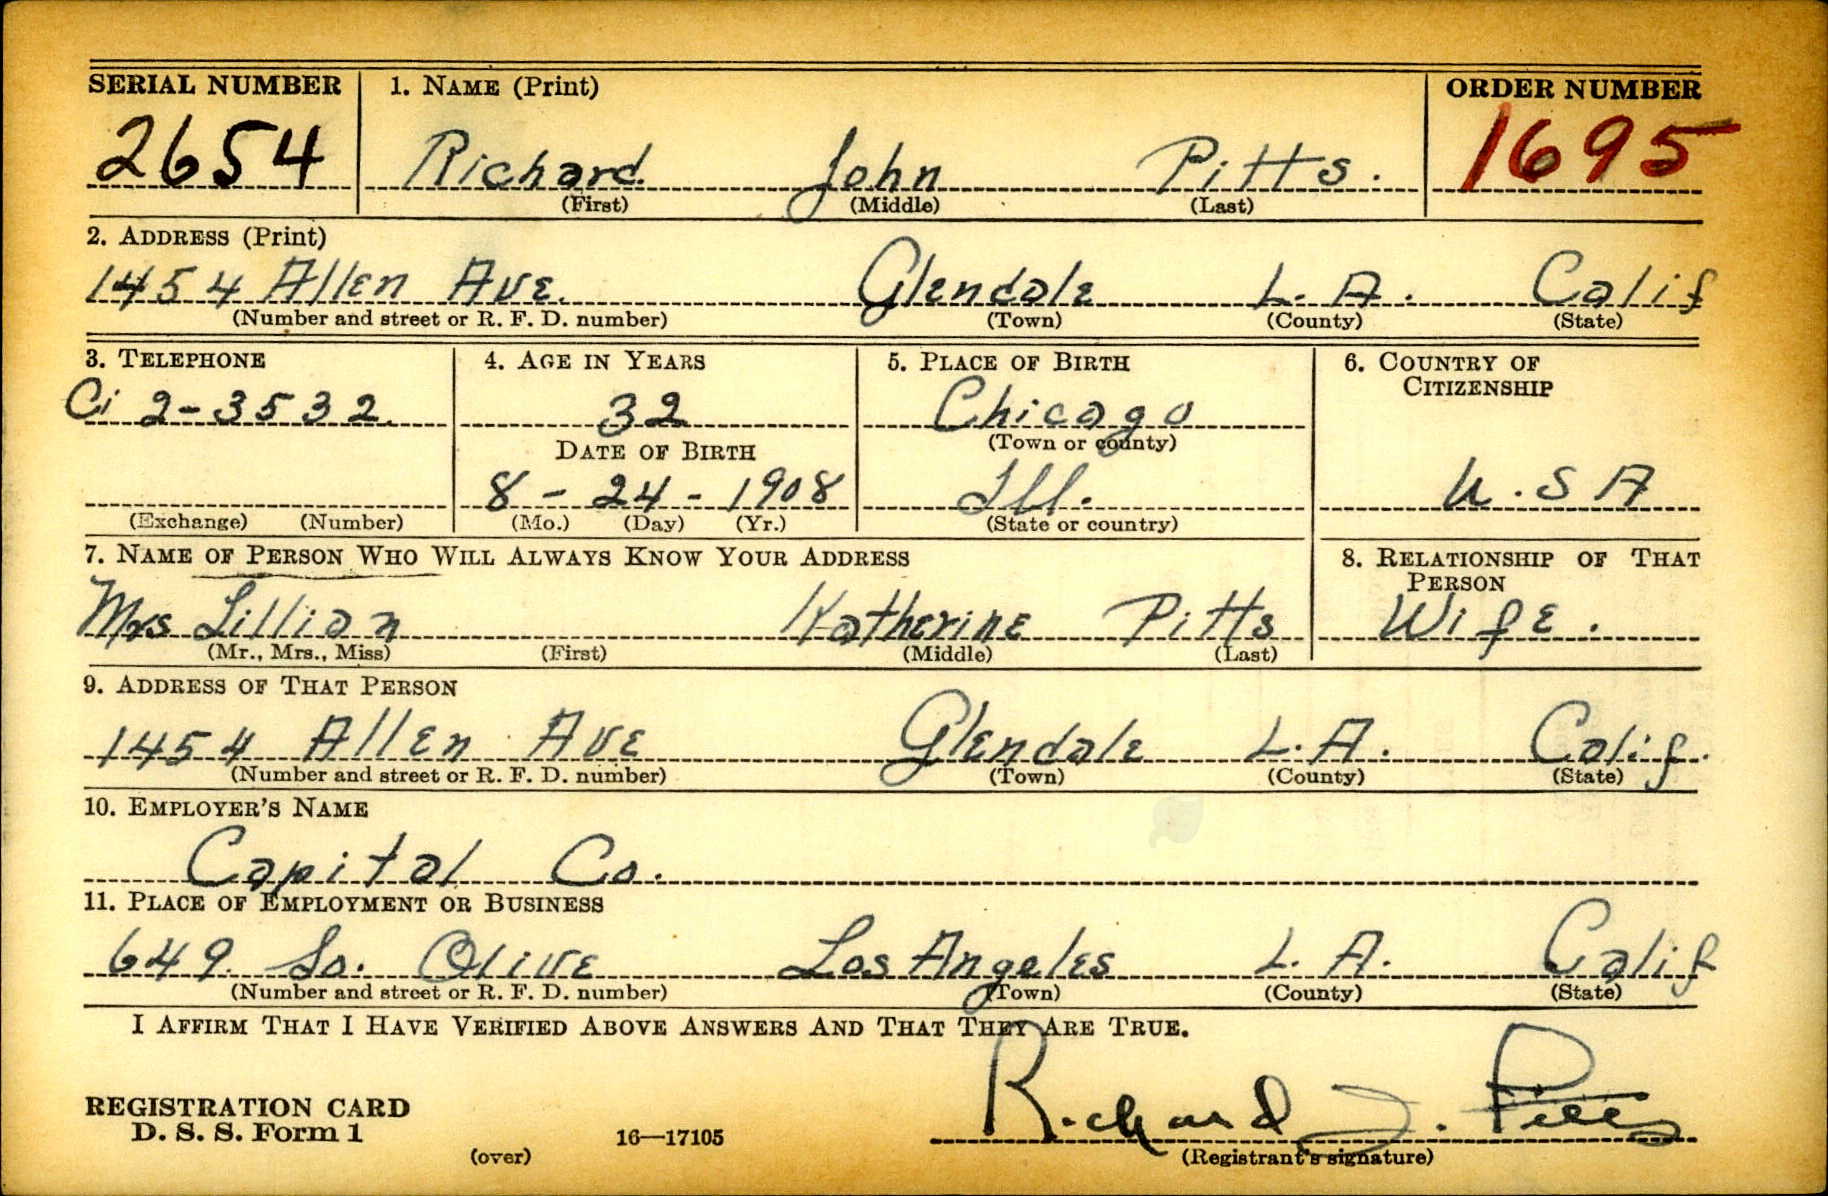 SERIAL NUMBER 1. NAME (Print) ORDER NUMBER
2654 Richard John Pitts. 1695
(First) (Middle) (Last)
2. ADDRESS (Print)
1454 Allen Ave. Glendale L. A. Calif
(Number and street or R. F. D. number) (Town) (County) (State)
3. TELEPHONE 4. AGE IN YEARS 5. PLACE OF BIRTH 6. COUNTRY OF
CITIZENSHIP
Ci 2-3532 32 Chicago
(Town or county)
DATE OF BIRTH
8 - 24 - 1908 Ill. U.S A
(Exchange) (Number) (Mo.) (Day) (Yr.) (State or country)
7. NAME OF PERSON WHO WILL ALWAYS KNOW YOUR ADDRESS 8. RELATIONSHIP OF THAT
PERSON
Mrs Lillian Katherine Pitts Wife.
(Mr., Mrs., Miss) (First) (Middle) (Last)
9. ADDRESS OF THAT PERSON
1454 Allen Ave Glendale L. A. Calif.
(Number and street or R. F. D. number) (Town) (County) (State)
10. EMPLOYER'S NAME
Capital Co.
11. PLACE OF EMPLOYMENT OR BUSINESS
649 So. Olive Los Angeles L. A. Calif
(Number and street or R. F. D. number) (Town) (County) (State)
I AFFIRM THAT I HAVE VERIFIED ABOVE ANSWERS AND THAT THEY ARE TRUE.
REGISTRATION CARD
D. S. S. Form 1 Richard J. Pitts
(over) 16—17105 (Registrant's signature)